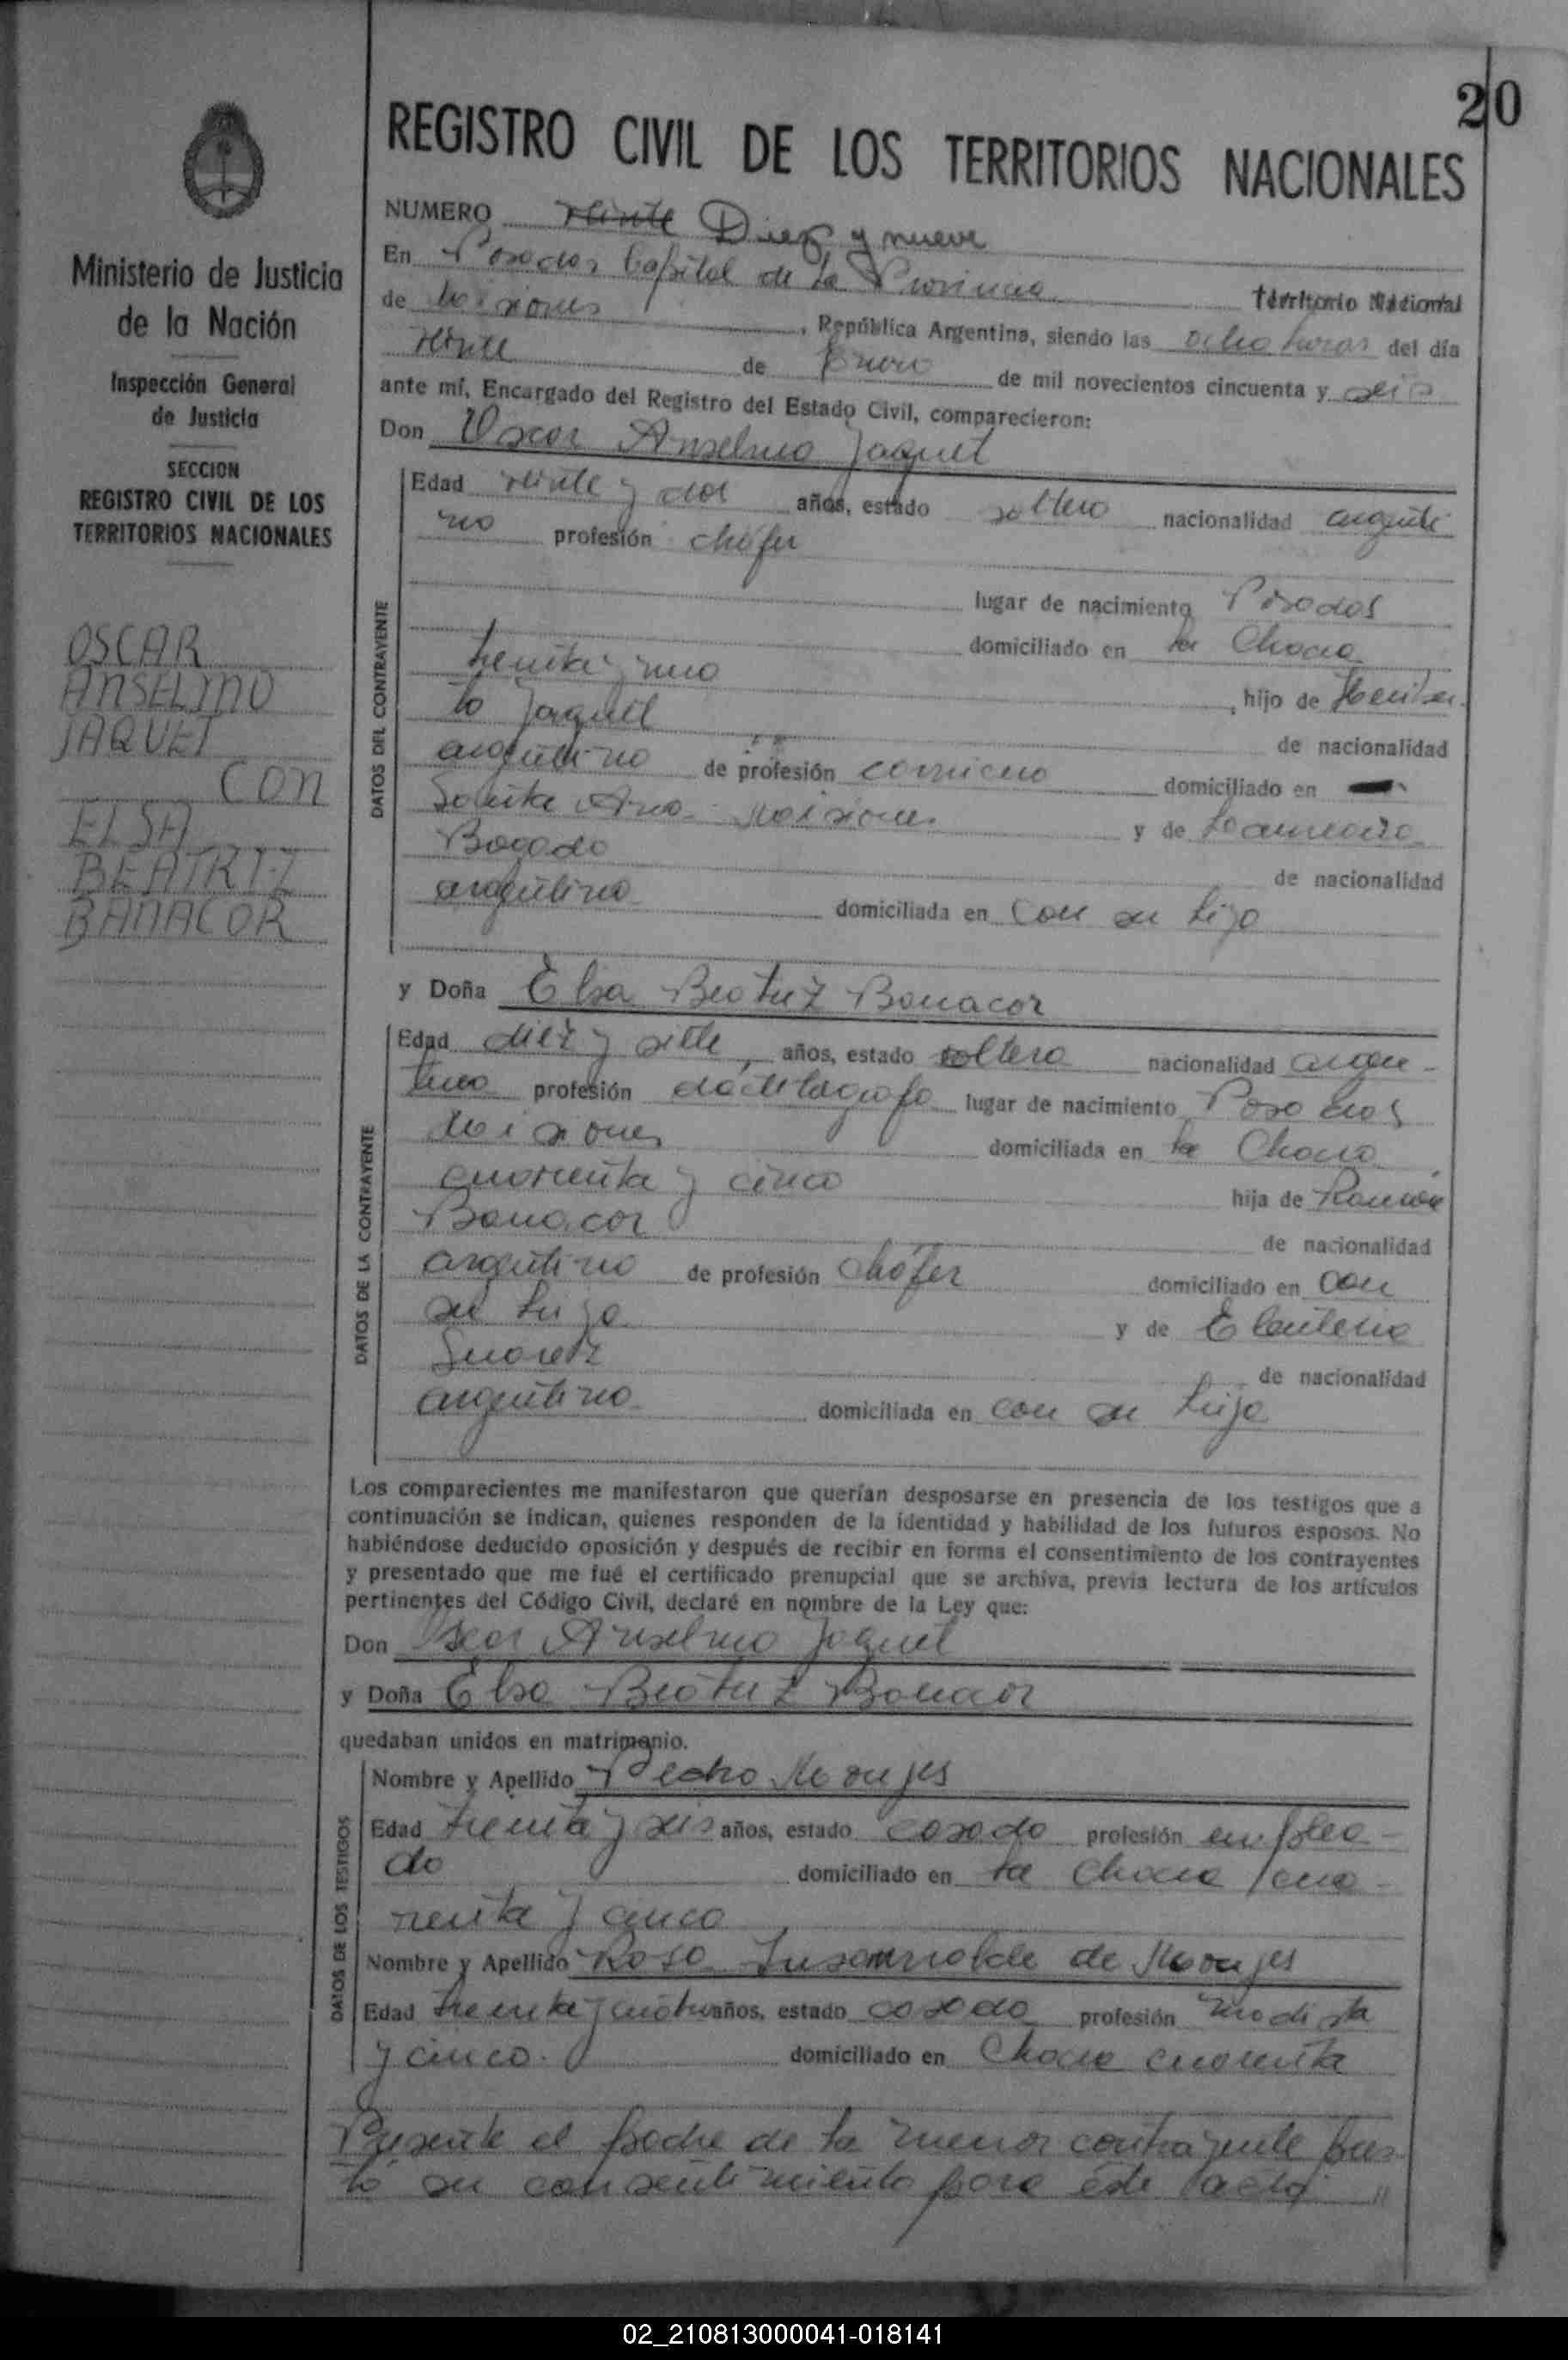 20
REGISTRO CIVIL DE LOS TERRITORIOS NACIONALES
Ministerio de Justicia
de la Nación
Inspección General
de Justicia
SECCION
REGISTRO CIVIL DE LOS
TERRITORIOS NACIONALES
OSCAR
ANSELMO
JAQUET
CON
ELSA
BEATRIZ
BANACOR
NUMERO veinte Diez y nueve
En Posadas Capital de la Provincia Territorio Nacional
de Misiones, República Argentina, siendo las ocho horas del día
veinte de Enero de mil novecientos cincuenta y seis
ante mí, Encargado del Registro del Estado Civil, comparecieron:
Don Oscar Anselmo Jaquet
DATOS DEL CONTRAYENTE
Edad veinte y dos años, estado soltero nacionalidad argenti
no profesión chófer
lugar de nacimiento Posadas
domiciliado en la Chacra
treinta y uno, hijo de
to Jaquet de nacionalidad
argentino de profesión domiciliado en
Santa Ana - Misiones y de
Bogado de nacionalidad
argentina domiciliada en con su hijo
y Doña Elsa Beatriz Banacor
DATOS DE LA CONTRAYENTE
Edad diez y siete, años, estado soltera nacionalidad argen-
tina profesión dactilógrafa lugar de nacimiento Posadas
Misiones domiciliada en la Chacra
cuarenta y cinco hija de Ramón
Banacor de nacionalidad
argentino de profesión chófer domiciliado en con
su hija y de Eleuteria
Suarez de nacionalidad
argentina domiciliada en con su hija
Los comparecientes me manifestaron que querían desposarse en presencia de los testigos que a
continuación se indican, quienes responden de la identidad y habilidad de los futuros esposos. No
habiéndose deducido oposición y después de recibir en forma el consentimiento de los contrayentes
y presentado que me fué el certificado prenupcial que se archiva, previa lectura de los artículos
pertinentes del Código Civil, declaré en nombre de la Ley que:
Don Oscar Anselmo Jaquet
y Doña Elsa Beatriz Banacor
quedaban unidos en matrimonio.
DATOS DE LOS TESTIGOS
Nombre y Apellido Pedro Monjes
Edad treinta y seis años, estado casado profesión emplea-
do domiciliado en la Chacra cua-
renta y cinco
Nombre y Apellido Rosa Insaurralde de Monjes
Edad treinta y años, estado casada profesión modista
y cinco. domiciliado en Chacra cuarenta
Presente el padre de la menor contrayente pres-
tó su consentimiento para éste acto
02_210813000041-018141